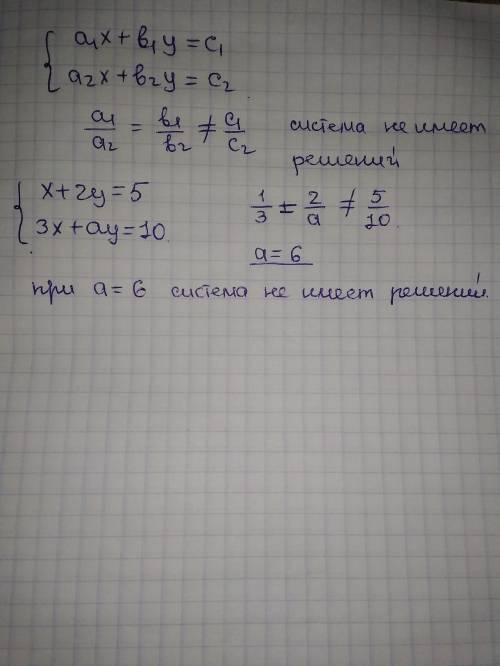 a₁x + b₁y = c₁
a₂x + b₂y = c₂
a₁/a₂ = b₁/b₂ ≠ c₁/c₂ система не имеет
решений
x + 2y = 5
3x + ay = 10.
1/3 = 2/a ≠ 5/10.
a = 6
при a = 6 система не имеет решений.